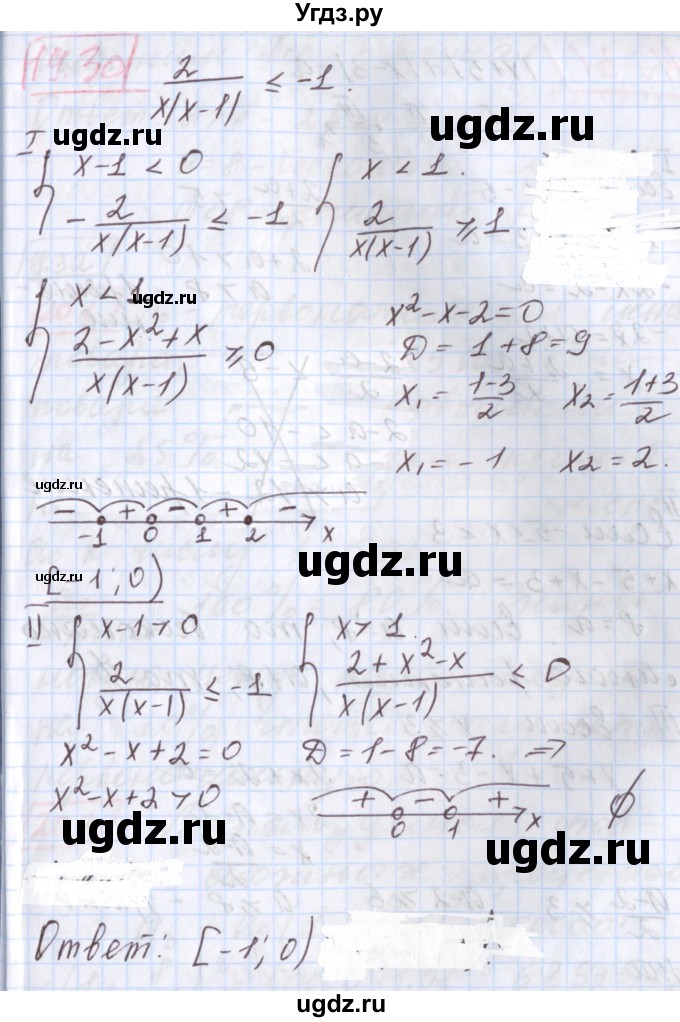 Угдз.ру
19.30
2/(x(x-1)) ≤ -1.
ugdz.ru ugdz.ru
I { x-1 < 0 { x < 1.
-2/(x(x-1)) ≤ -1 2/(x(x-1)) ≥ 1.
{ x < 1 ugdz.ru x²-x-2=0
(2-x²+x)/(x(x-1)) ≥ 0 D = 1+8=9
x₁ = (1-3)/2 x₂ = (1+3)/2
x₁ = -1 x₂ = 2.
ugdz.ru
- + - + -
-1 0 1 2 x
ugdz.ru ugdz.ru
[-1; 0)
II { x-1 > 0 { x > 1.
2/(x(x-1)) ≤ -1 (2+x²-x)/(x(x-1)) ≤ 0
x²-x+2=0 D=1-8=-7. ⇒
x²-x+2>0 + - + ∅
0 1 x
ugdz.ru ugdz.ru
Ответ: [-1; 0)
ugdz.ru